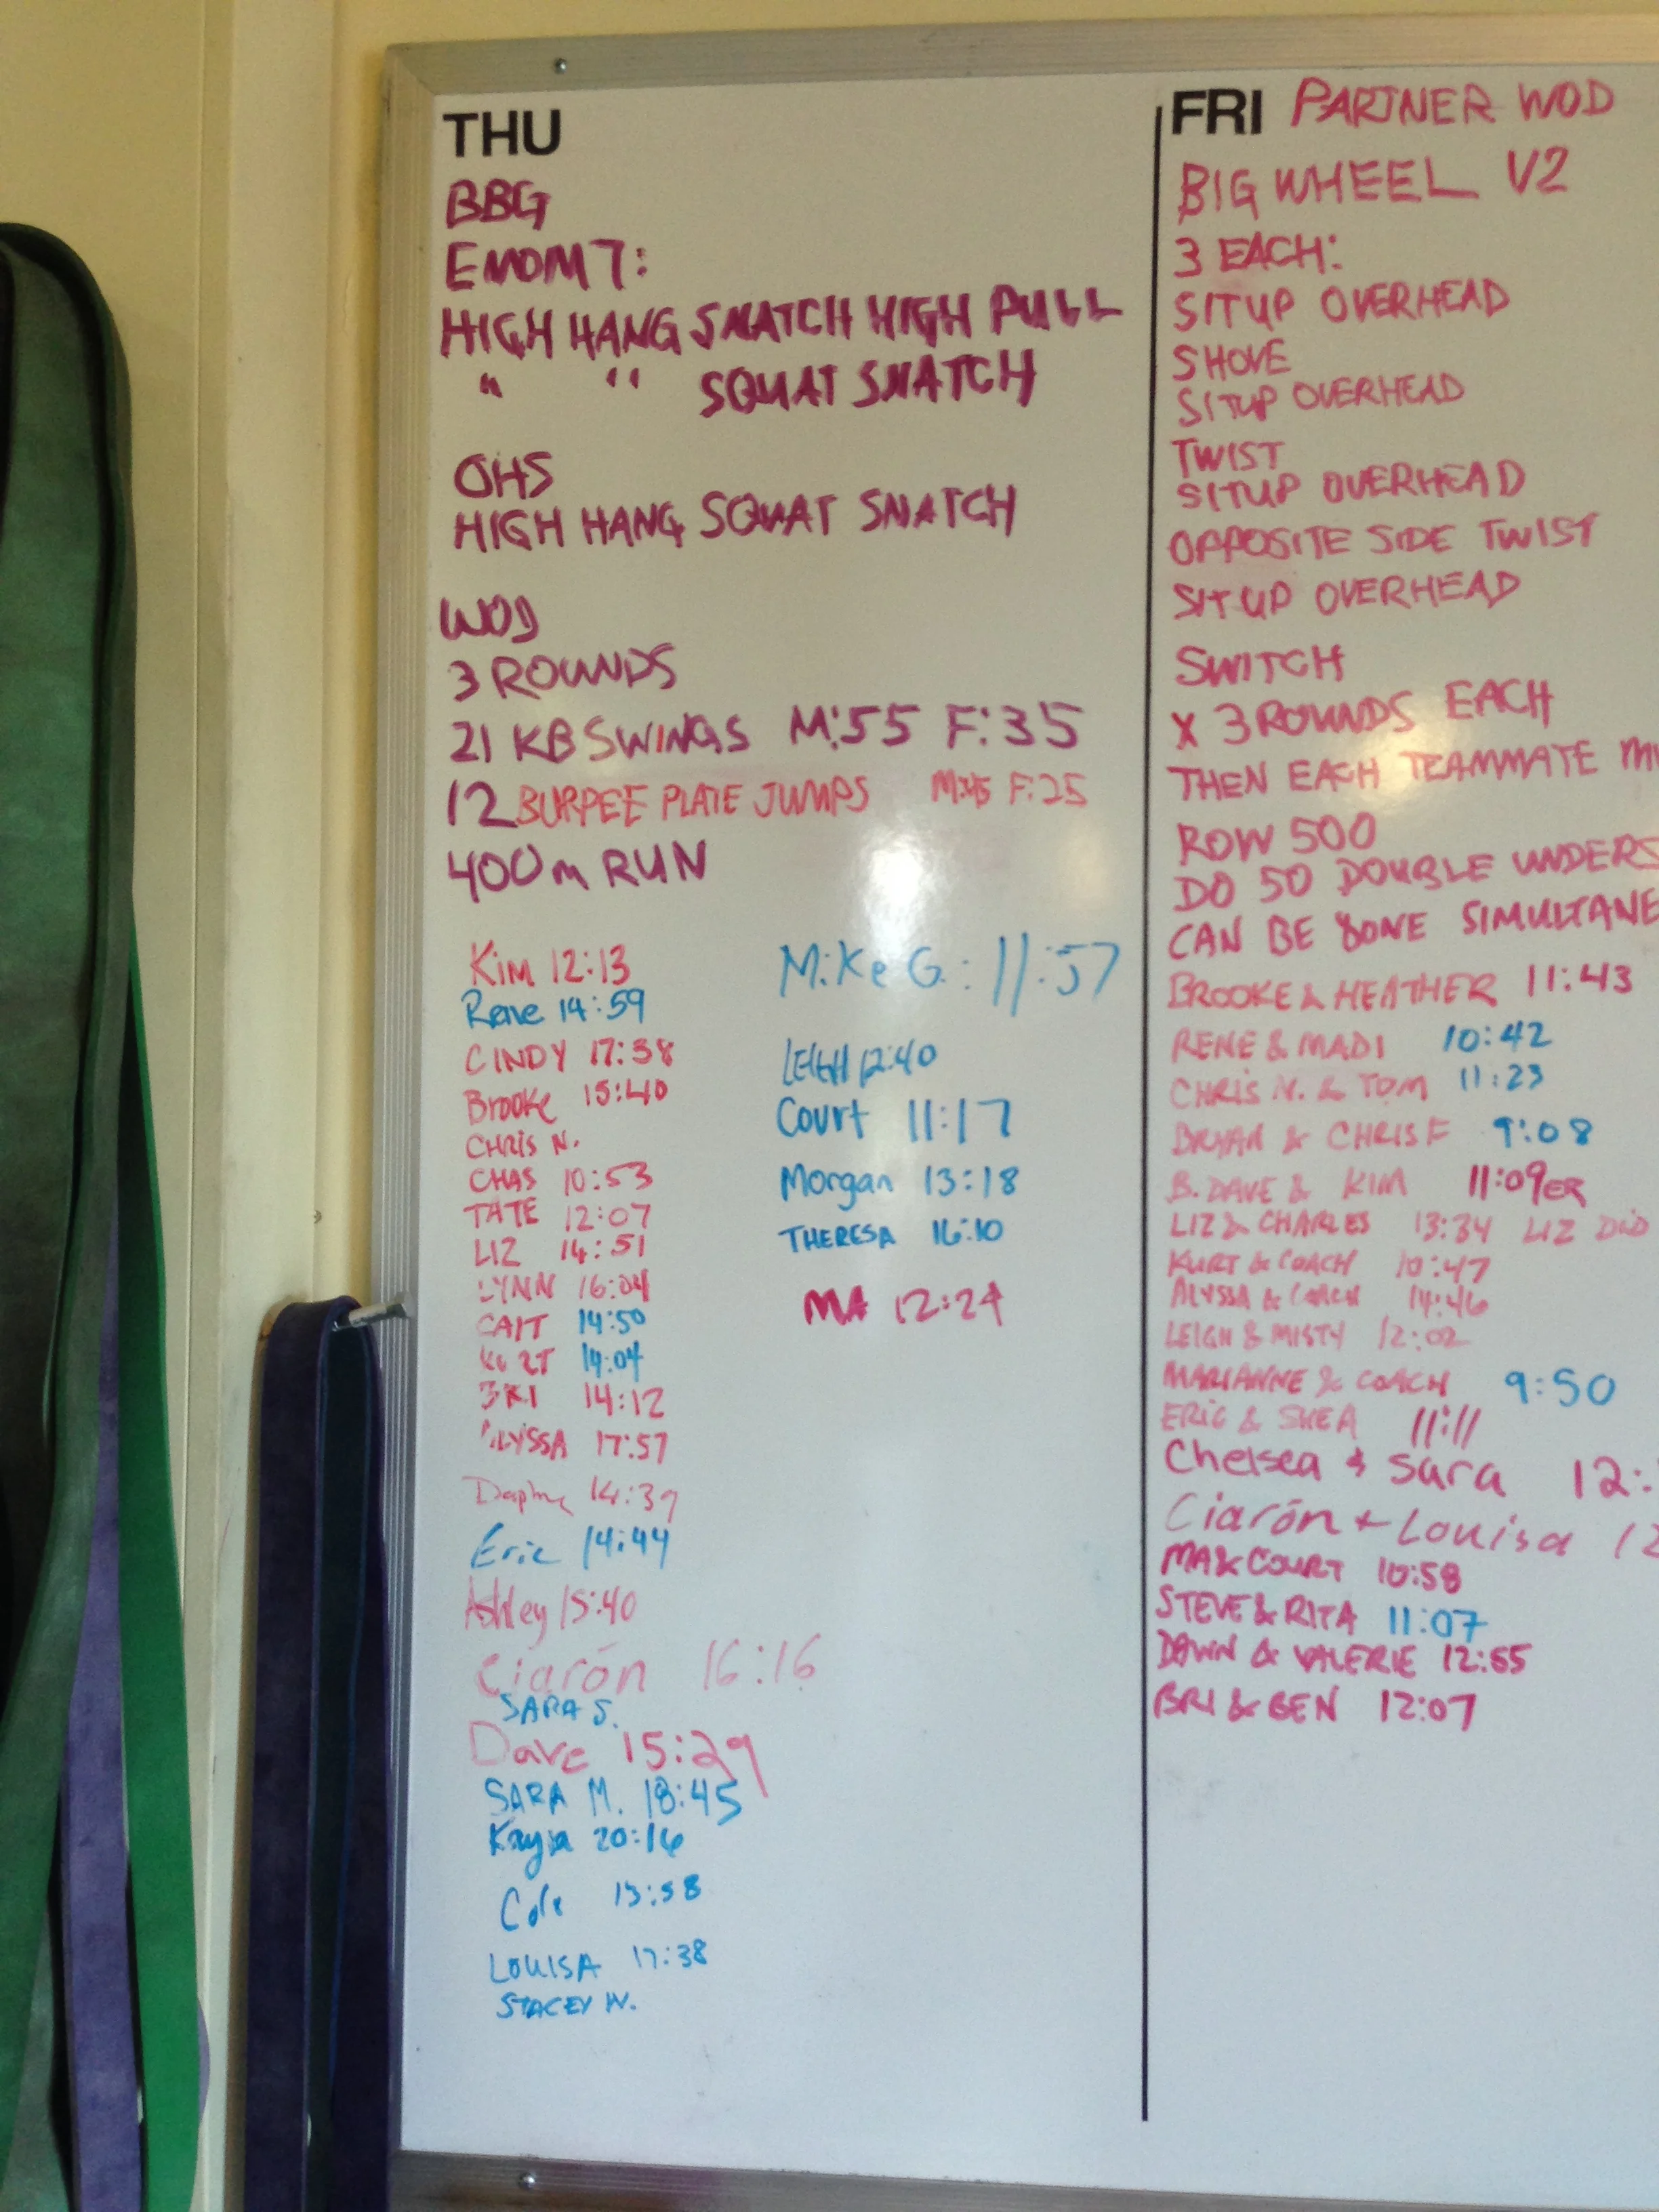 THU
BBG
EMOM 7:
HIGH HANG SNATCH HIGH PULL
" " SQUAT SNATCH
OHS
HIGH HANG SQUAT SNATCH
WOD
3 ROUNDS
21 KB SWINGS M:55 F:35
12 BURPEE PLATE JUMPS M:45 F:25
400m RUN
Kim 12:13
Rene 14:59
CINDY 17:38
Brooke 15:40
CHRIS N.
CHAS 10:53
TATE 12:07
LIZ 14:51
LYNN 16:04
CAIT 14:50
KURT 14:04
BRI 14:12
ALYSSA 17:57
Daphne 14:39
Eric 14:44
Ashley 15:40
Ciarón 16:16
SARA S.
Dave 15:29
SARA M. 18:45
Kayla 20:16
Cole 15:58
LOUISA 17:38
STACEY W.
Mike G.: 11:57
LEIGH 12:40
Court 11:17
Morgan 13:18
THERESA 16:10
MA 12:24
FRI PARTNER WOD
BIG WHEEL V2
3 EACH:
SITUP OVERHEAD
SHOVE
SITUP OVERHEAD
TWIST
SITUP OVERHEAD
OPPOSITE SIDE TWIST
SITUP OVERHEAD
SWITCH
X 3 ROUNDS EACH
THEN EACH TEAMMATE
ROW 500
DO 50 DOUBLE UNDERS
CAN BE DONE SIMULTANE
BROOKE & HEATHER 11:43
RENE & MADI 10:42
CHRIS N. & TOM 11:23
BRYAN & CHRIS F 9:08
B. DAVE & KIM 11:09ER
LIZ & CHARLES 13:34 LIZ DID
KURT & COACH 10:47
ALYSSA & COACH 14:46
LEIGH & MISTY 12:02
MARIANNE & COACH 9:50
ERIC & SHEA 11:11
Chelsea & Sara 12:
Ciarón + Louisa 12
MA & COURT 10:58
STEVE & RITA 11:07
DAWN & VALERIE 12:55
BRI & BEN 12:07